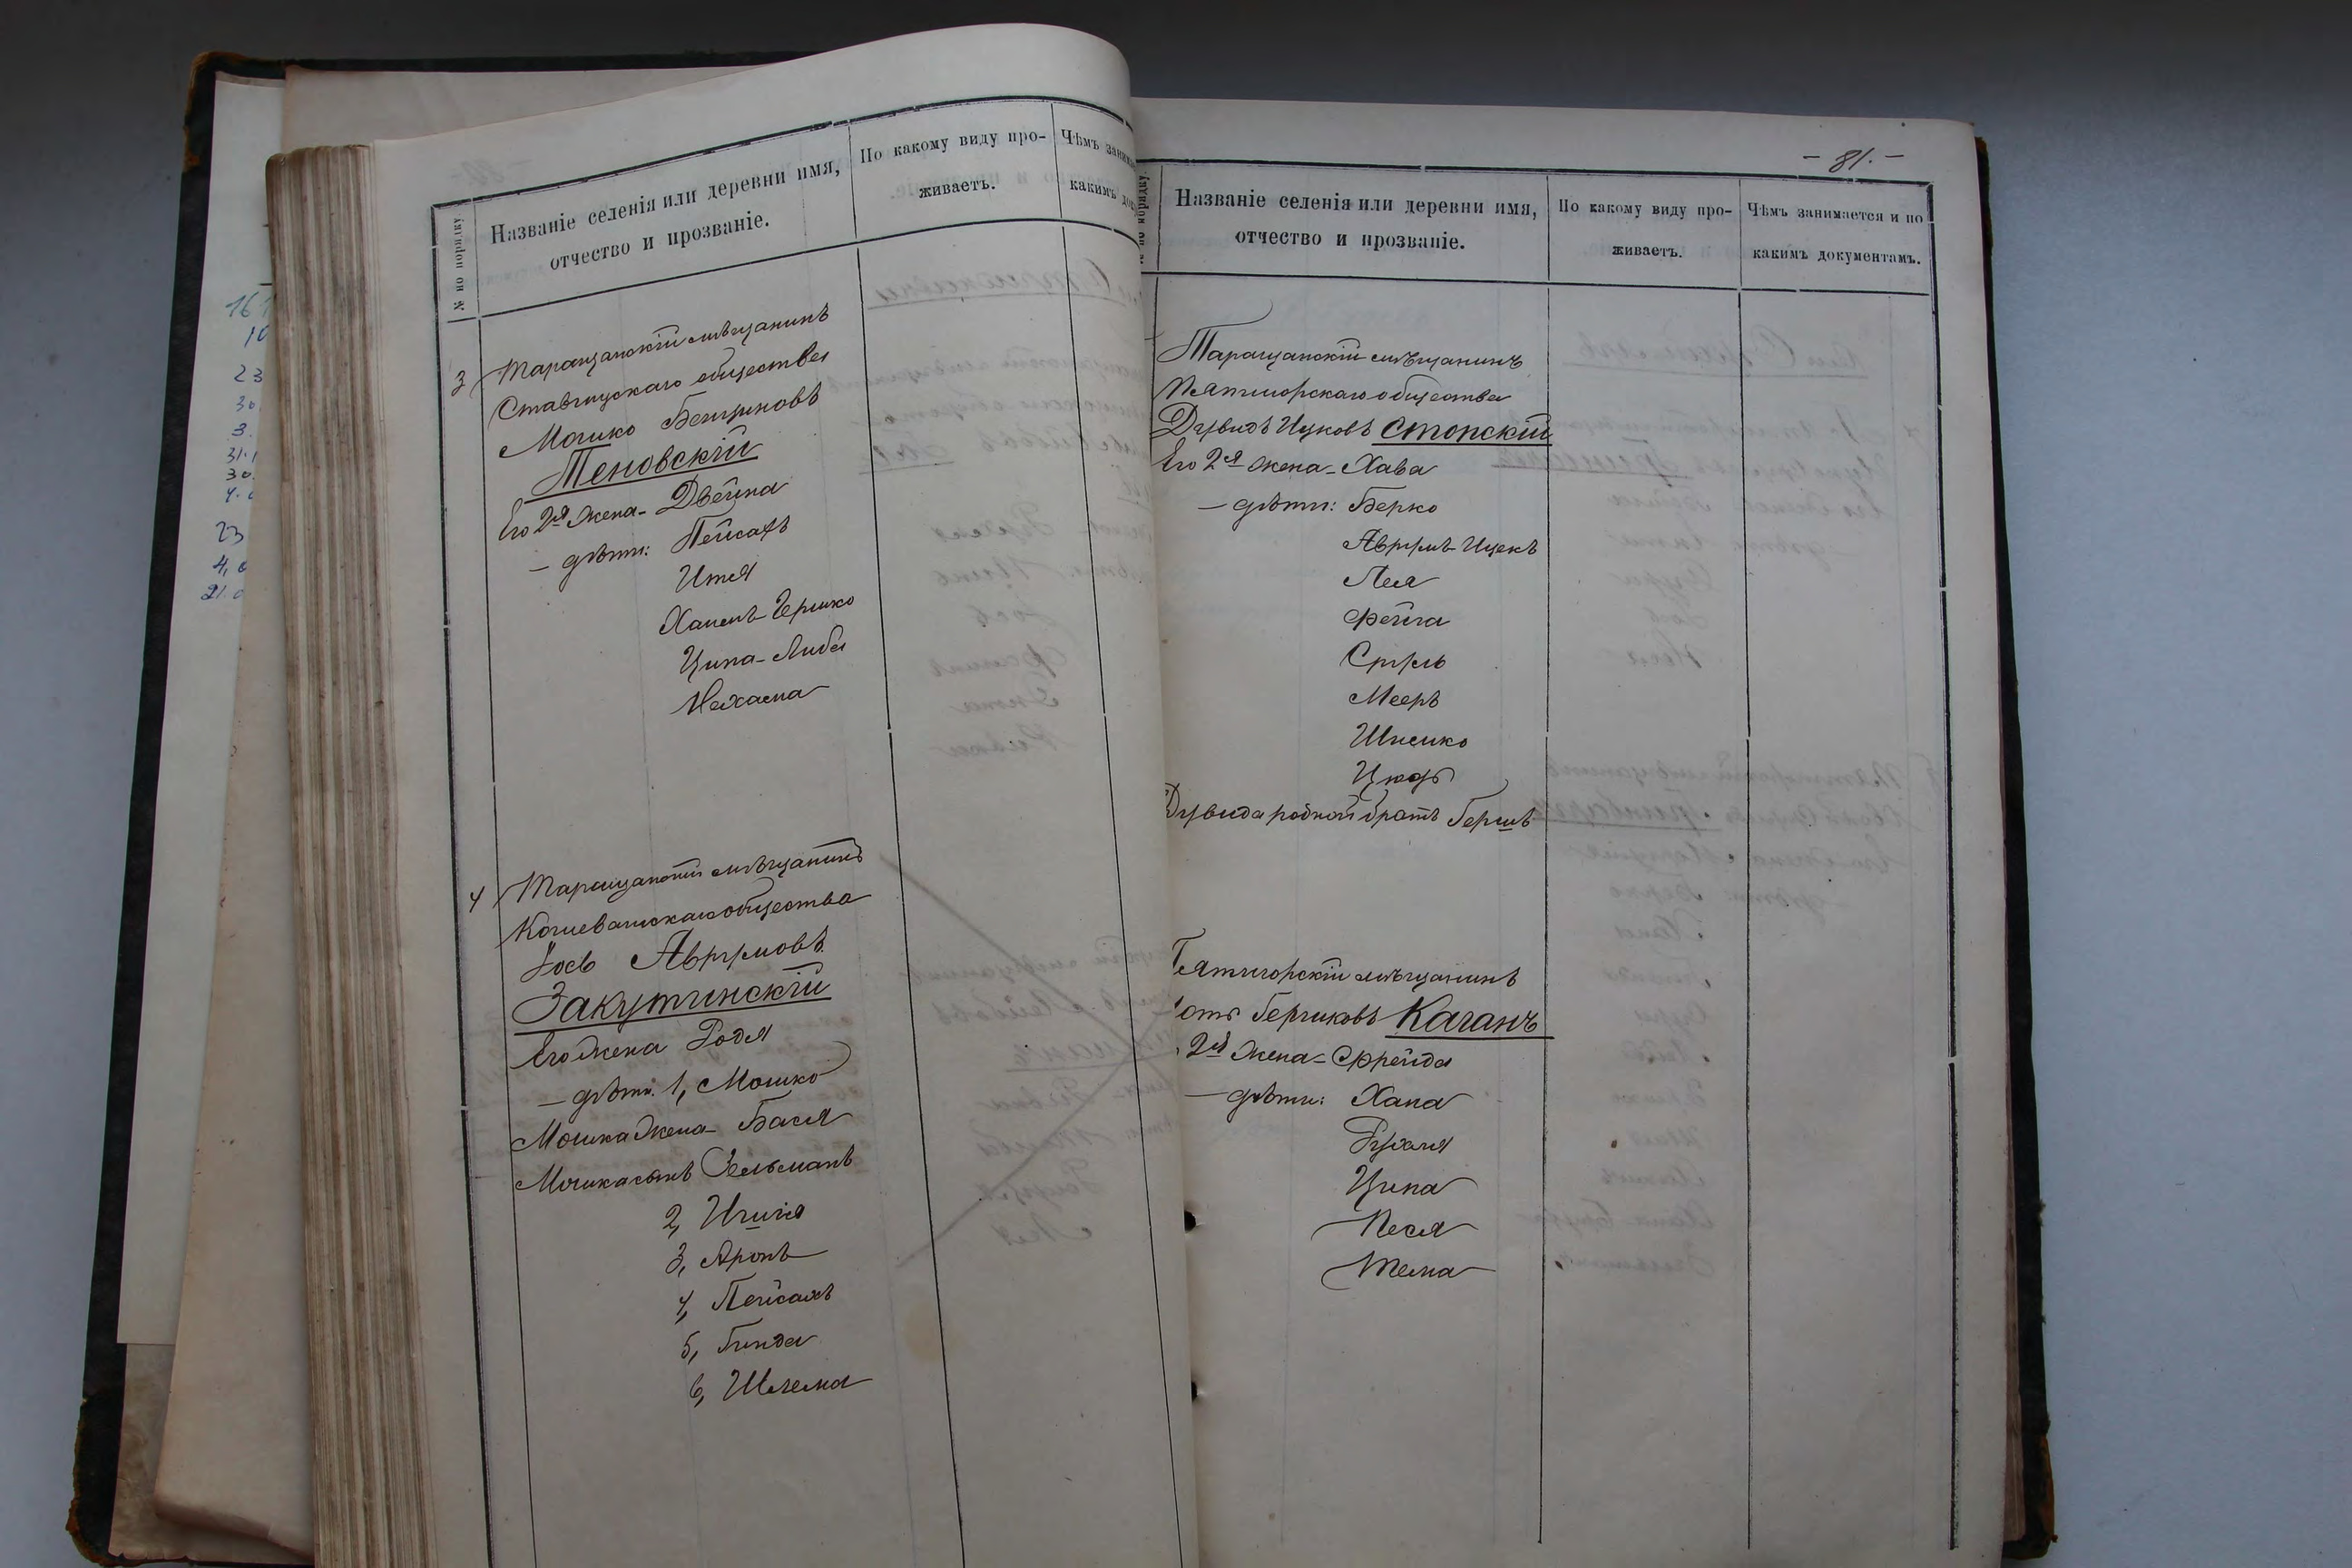 № по порядку
Названіе селенія или деревни имя,
отчество и прозваніе.
По какому виду про-
живаетъ.
Чѣмъ
какимъ
3 Таращанскій мѣщанинъ
Ставищускаго общества
Мошко Бенціоновъ
Теновскій
Его 2я жена - Двейна
- дѣти: Пейсахъ
Итя
Хаимъ-Гершко
Ципа-Либа
Нехама
4 Таращанскій мѣщанинъ
Кошеватскаго общества
Іось Аврумовъ
Закутинскій
Его жена Родя
- дѣти: 1, Мошко
Мошка жена - Бася
Мошка сынъ Зельманъ
2,
3, Аронъ
4, Пейсахъ
5, Гинда
6, Шлема
- 81. -
Названіе селенія или деревни имя,
отчество и прозваніе.
По какому виду про-
живаетъ.
Чѣмъ занимается и по
какимъ документамъ.
Таращанскій мѣщанинъ
Пятигорскаго общества
Дувидъ Ицковъ Стопскій
Его 2я жена - Хава
- дѣти: Берко
Аврумъ-Ицекъ
Лея
Фейга
Сруль
Мееръ
Шмилко
Дувида родной братъ Гершъ
Пятигорскій мѣщанинъ
Гершковъ Каганъ
2я жена - Фрейда
- дѣти: Хана
Рухля
Ципа
Песя
Тема
16
10
23
30
3.
31.
30.
4.
23
4,
21.